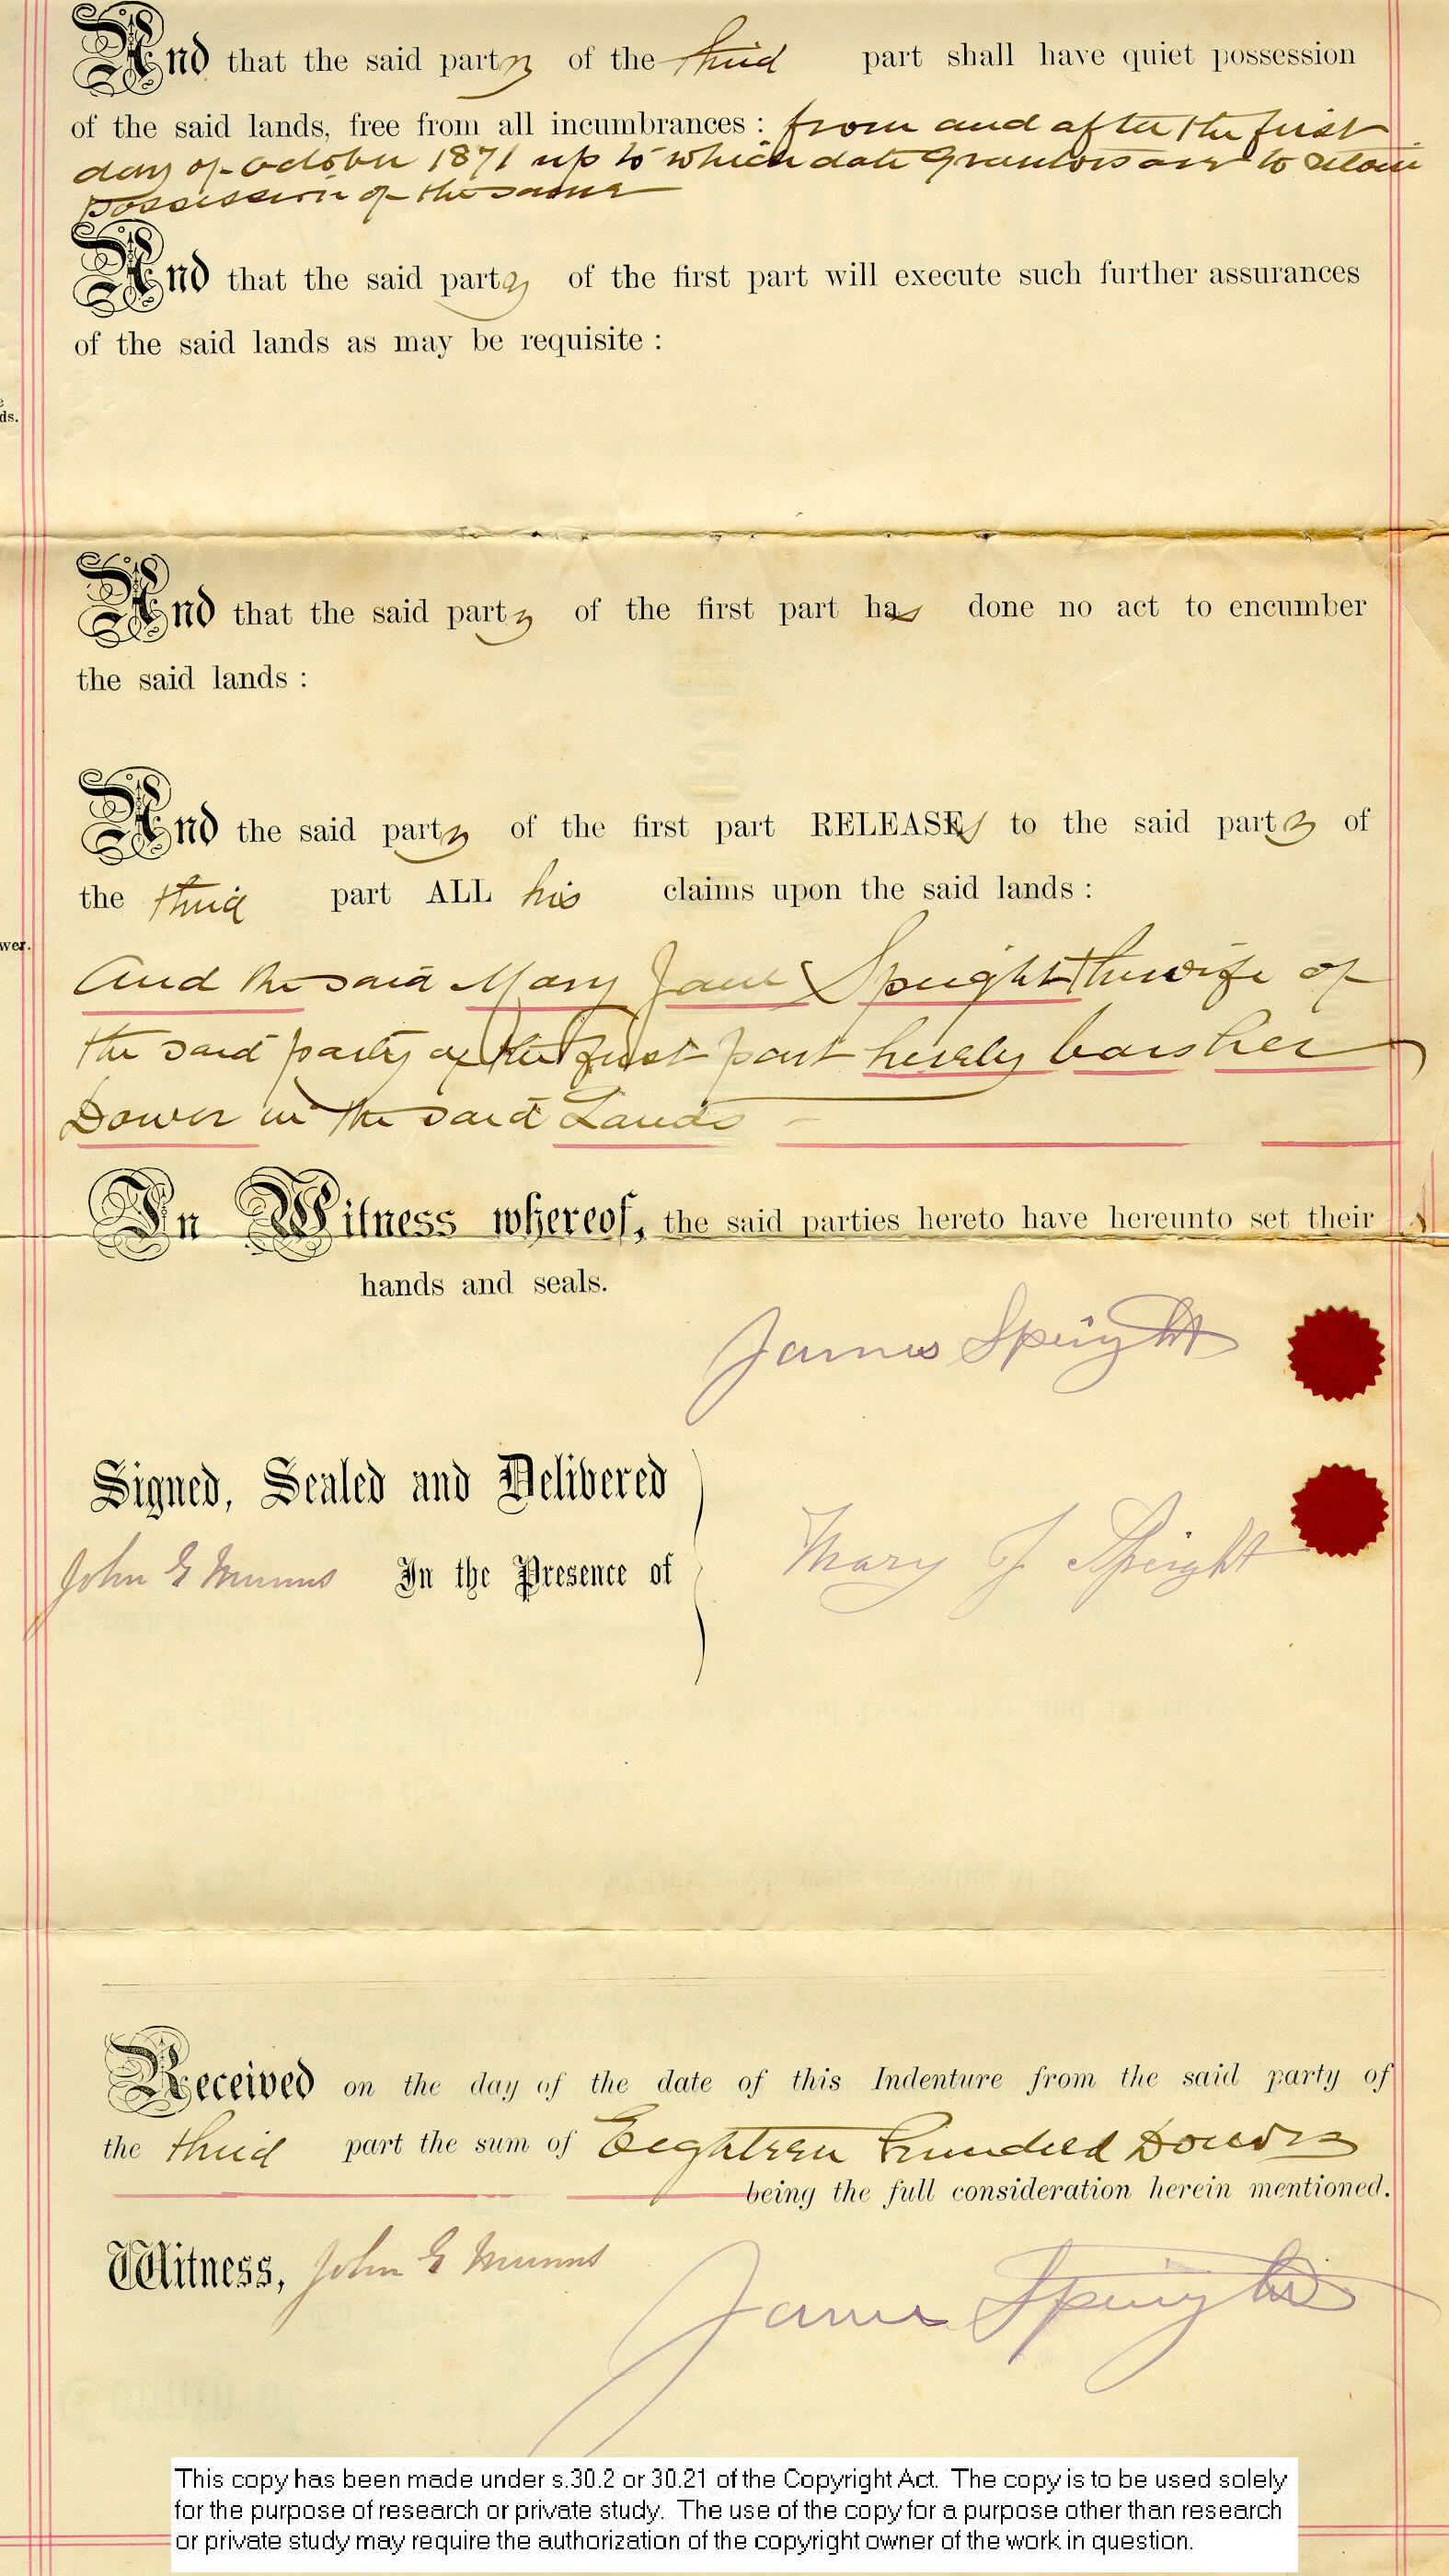 And that the said party of the third part shall have quiet possession
of the said lands, free from all incumbrances : from and after the first
day of October 1871 up to which date Grantors are to retain
possession of the same
And that the said party of the first part will execute such further assurances
of the said lands as may be requisite :
ds.
And that the said party of the first part has done no act to encumber
the said lands :
And the said party of the first part RELEASES to the said party of
the third part ALL his claims upon the said lands :
wer.
And the said Mary Jane Speight the wife of
the said party of the first part hereby bars her
Dower in the said Lands
In Witness whereof, the said parties hereto have hereunto set their
hands and seals.
James Speight
Signed, Sealed and Delivered
John E Munns In the Presence of
Mary J Speight
Received on the day of the date of this Indenture from the said party of
the third part the sum of Eighteen Hundred Dollars
being the full consideration herein mentioned.
Witness, John E Munns
James Speight
This copy has been made under s.30.2 or 30.21 of the Copyright Act. The copy is to be used solely
for the purpose of research or private study. The use of the copy for a purpose other than research
or private study may require the authorization of the copyright owner of the work in question.